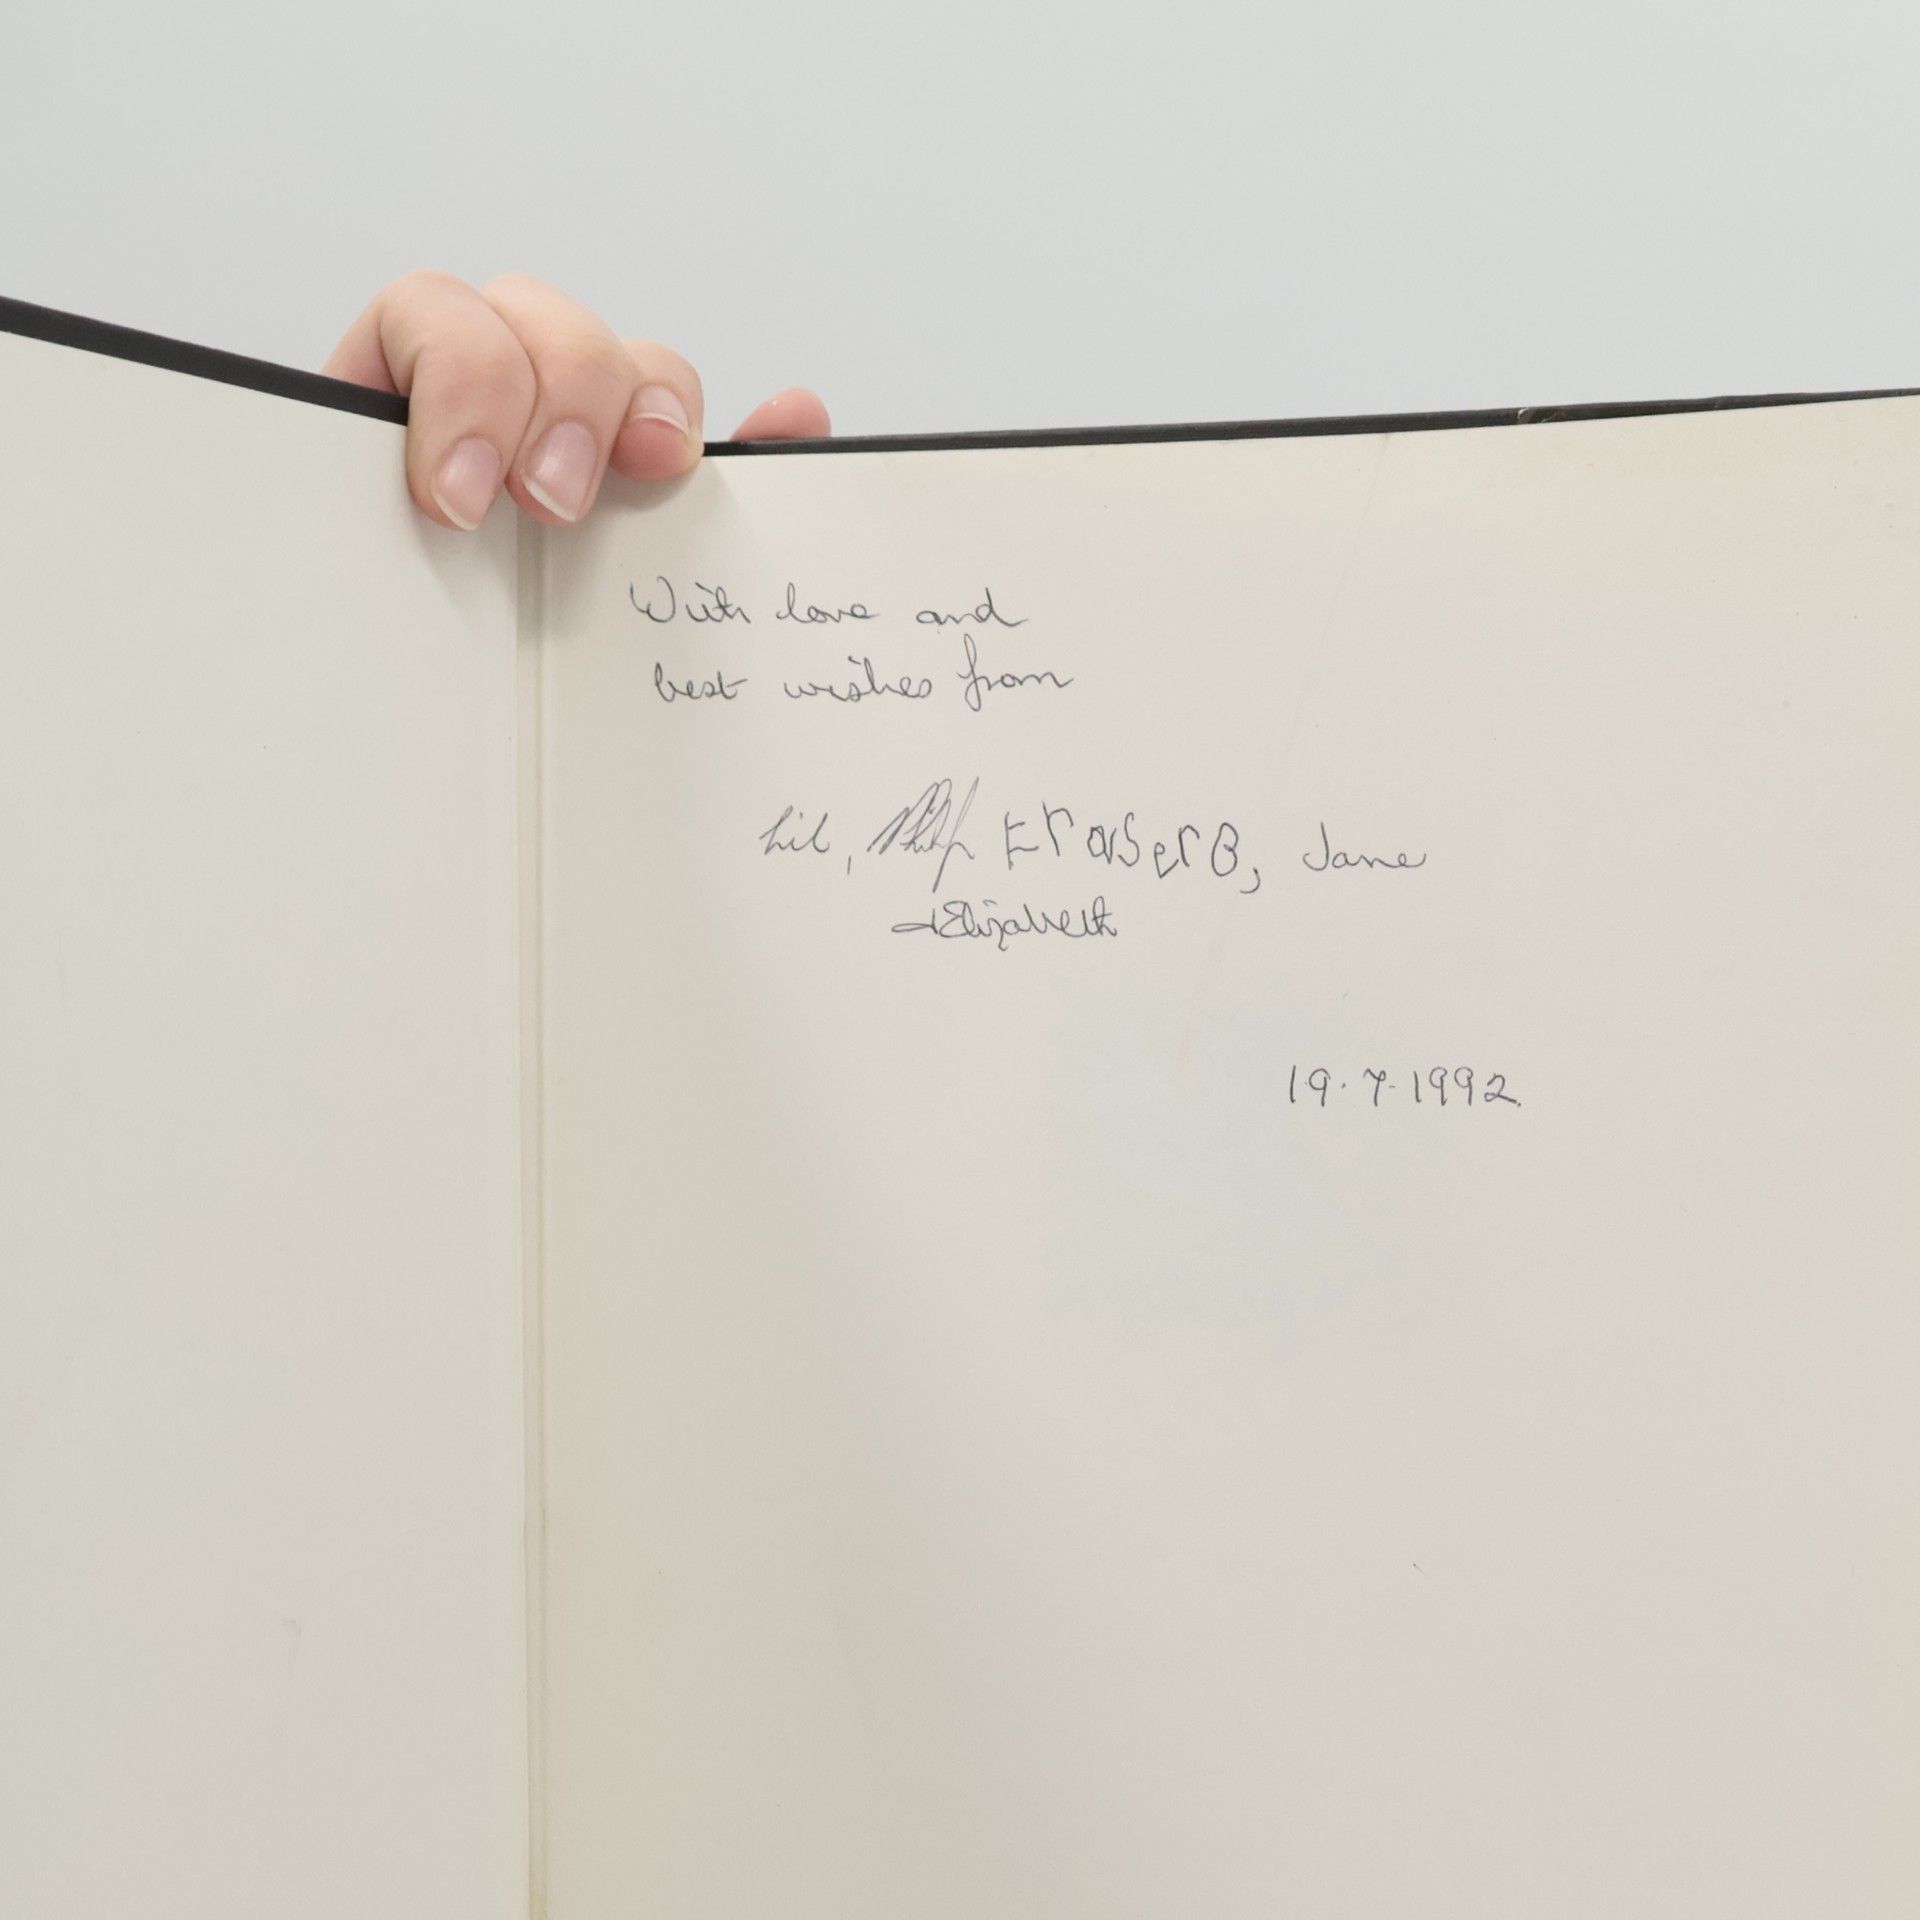 With love and
best wishes from
Lil, Philip Fraser B, Jane
+ Elizabeth
19.7.1992.